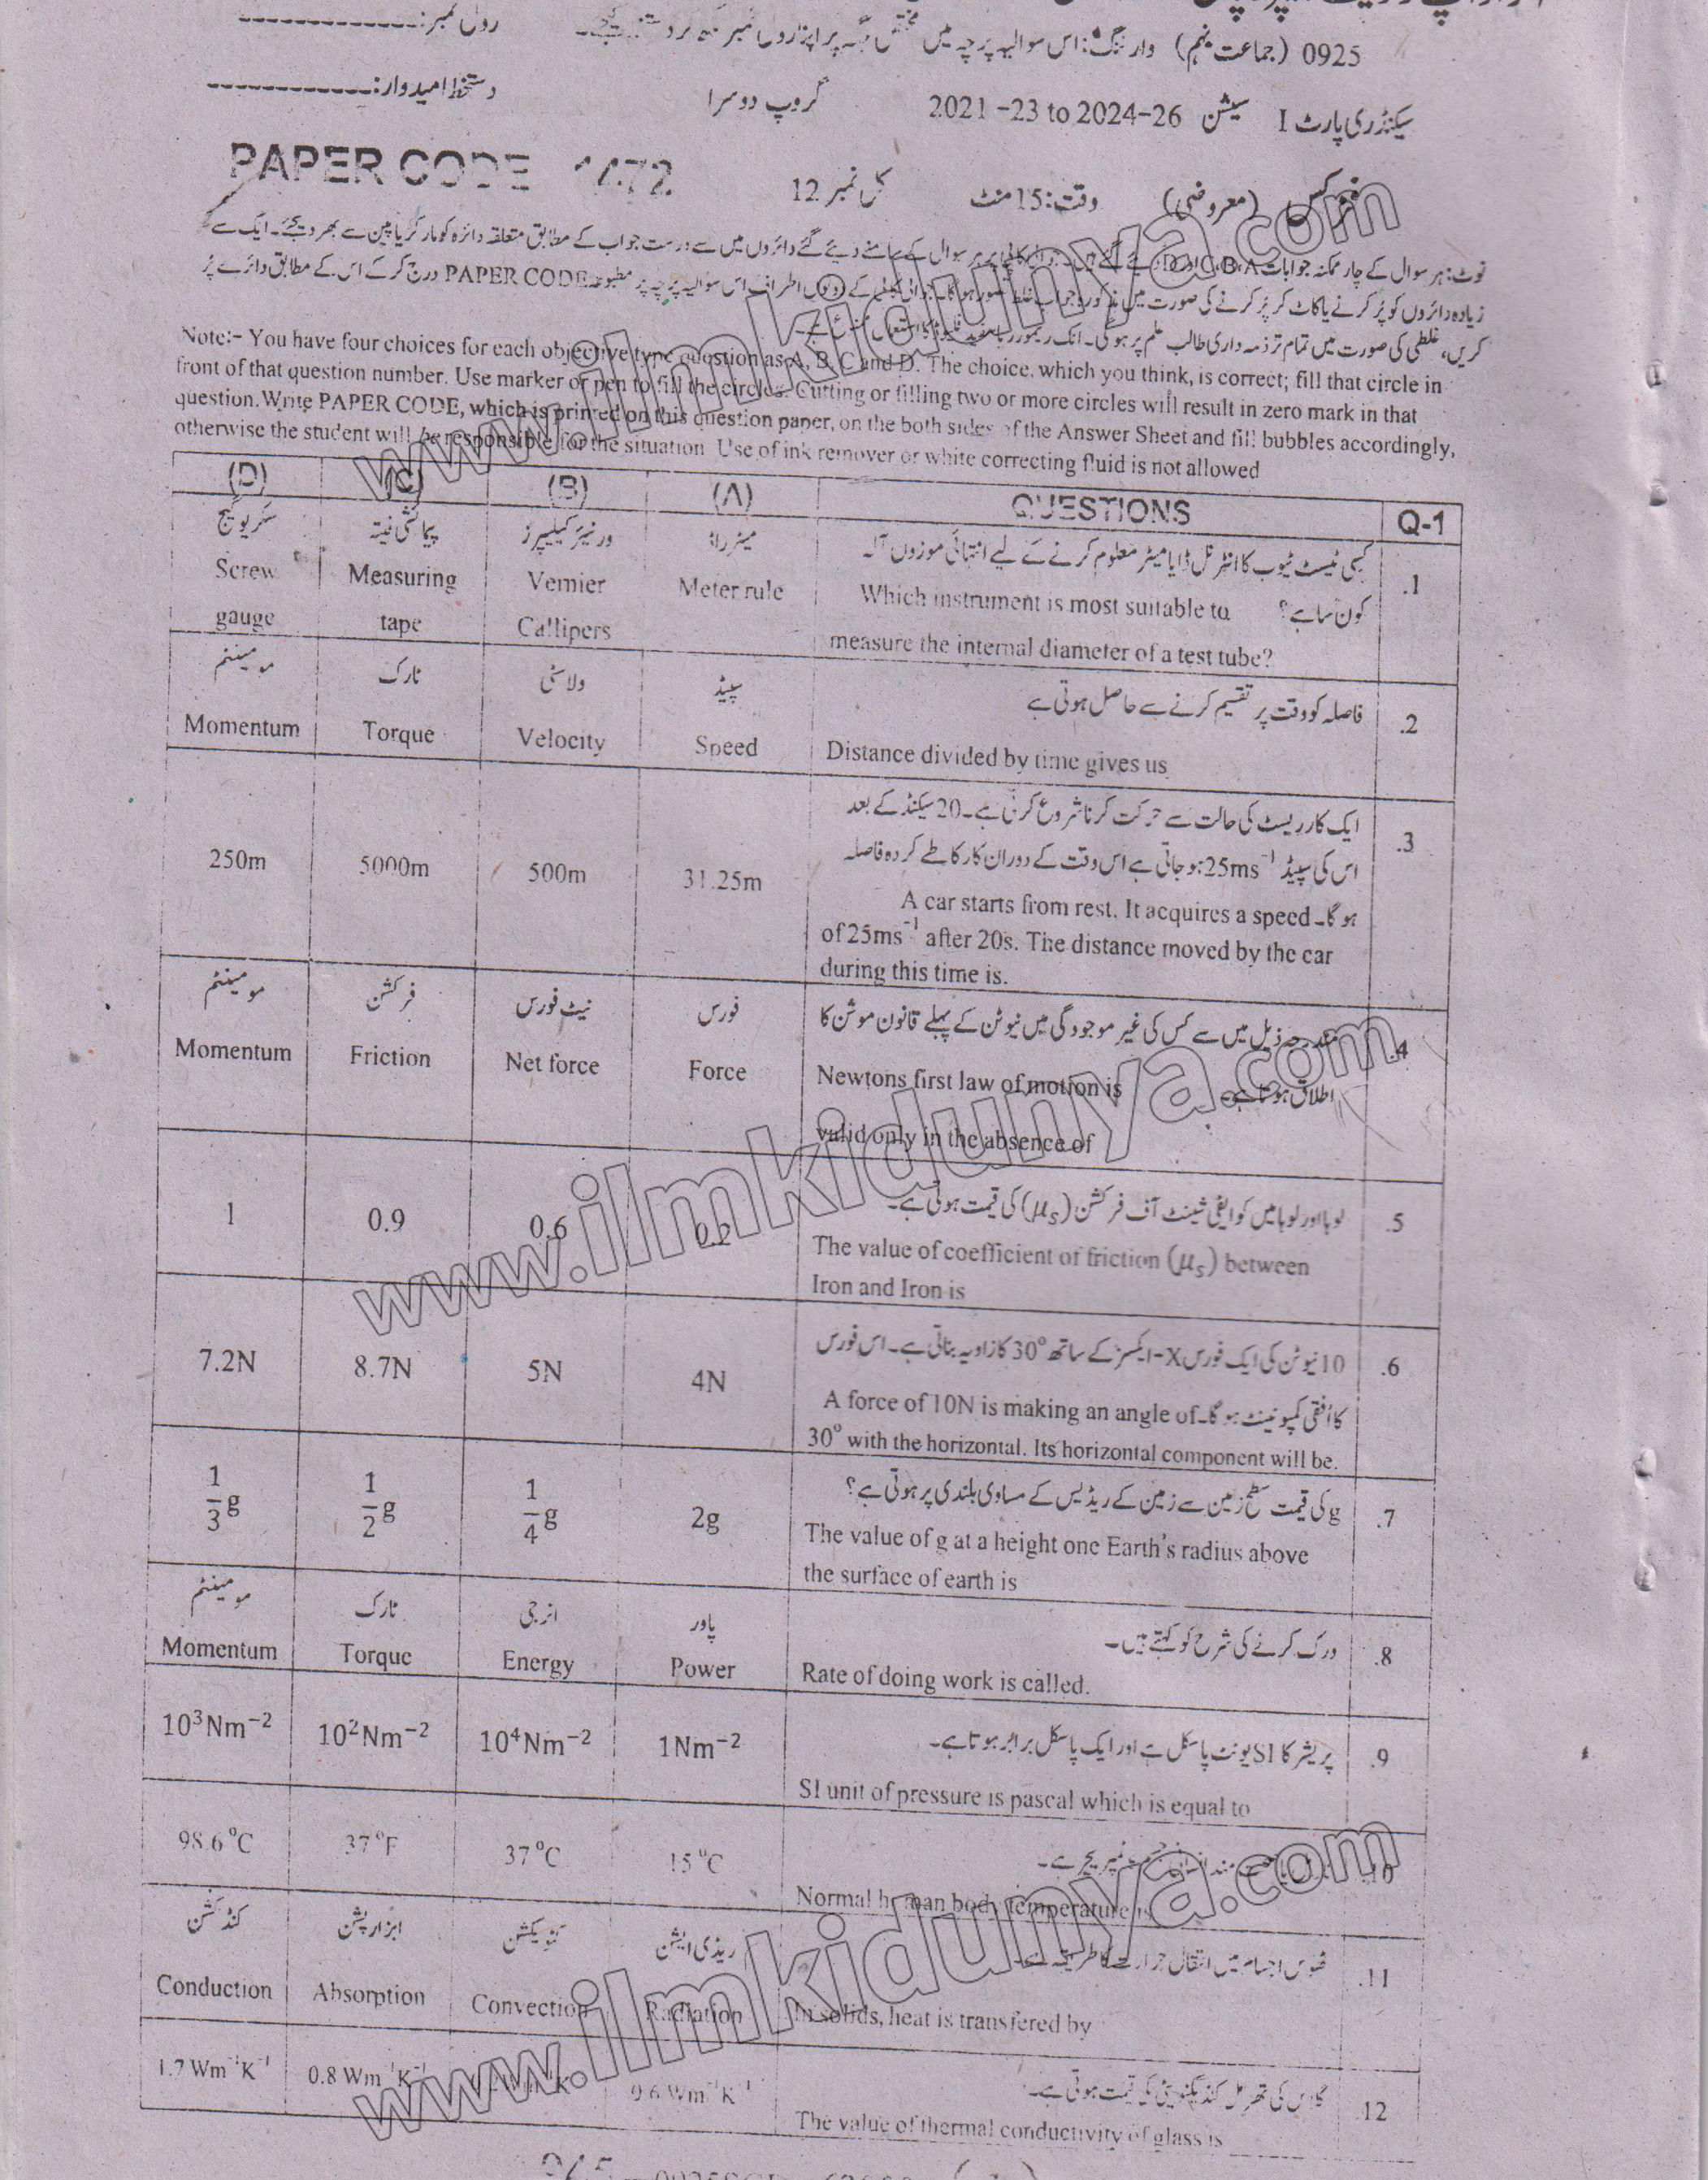 رول نمبر:
0925 (جماعت نہم) وارننگ: اس سوالیہ پرچہ میں مختص جگہ پر اپنا رول نمبر
دستخط امیدوار:
سیکنڈری پارٹ I سیشن 2021 -23 to 2024-26 گروپ دوسرا
PAPER CODE 1472
فزکس (معروضی) وقت: 15 منٹ کل نمبر 12
نوٹ: ہر سوال کے چار ممکنہ جوابات A، B، C اور D دیئے گئے ہیں۔ جوابی کاپی پر ہر سوال کے سامنے دیئے گئے دائروں میں سے درست جواب کے مطابق متعلقہ دائرہ کو مارکر یا پین سے بھر دیجئے۔ ایک سے
زیادہ دائروں کو پُر کرنے یا کاٹ کر پُر کرنے کی صورت میں مذکورہ جواب غلط تصور ہوگا۔ جوابی کاپی کے دونوں اطراف اس سوالیہ پرچہ پر مطبوعہ PAPER CODE درج کر کے اس کے مطابق دائرے پُر
کریں، غلطی کی صورت میں تمام تر ذمہ داری طالب علم پر ہوگی۔ انک ریموور یا سفید فلیوڈ کا استعمال ممنوع ہے۔
Note:- You have four choices for each objective type question as A, B, C and D. The choice, which you think, is correct; fill that circle in
front of that question number. Use marker or pen to fill the circles. Cutting or filling two or more circles will result in zero mark in that
question. Write PAPER CODE, which is printed on this question paper, on the both sides of the Answer Sheet and fill bubbles accordingly,
otherwise the student will be responsible for the situation. Use of ink remover or white correcting fluid is not allowed
(D) (C) (B) (A) QUESTIONS Q-1
سکریو گیج پیمائشی فیتہ ورنیئر کیلیپرز میٹر راڈ کسی ٹیسٹ ٹیوب کا انٹرنل ڈایا میٹر معلوم کرنے کے لیے انتہائی موزوں آلہ .1
Screw Measuring Vernier Meter rule Which instrument is most suitable to کون سا ہے؟
gauge tape Callipers measure the internal diameter of a test tube?
مومینٹم ٹارک ولاسٹی سپیڈ فاصلہ کو وقت پر تقسیم کرنے سے حاصل ہوتی ہے .2
Momentum Torque Velocity Speed Distance divided by time gives us
ایک کار ریسٹ کی حالت سے حرکت کرنا شروع کرتی ہے۔ 20 سیکنڈ کے بعد .3
250m 5000m 500m 31.25m اس کی سپیڈ 25ms⁻¹ ہو جاتی ہے اس وقت کے دوران کار کا طے کردہ فاصلہ
A car starts from rest. It acquires a speed ہو گا۔
of 25ms⁻¹ after 20s. The distance moved by the car
during this time is.
مومینٹم فرکشن نیٹ فورس فورس مندرجہ ذیل میں سے کس کی غیر موجودگی میں نیوٹن کے پہلے قانون موشن کا .4
Momentum Friction Net force Force Newtons first law of motion is اطلاق ہوتا ہے۔
valid only in the absence of
لوہا اور لوہا میں کوایفی شینٹ آف فرکشن (μs) کی قیمت ہوتی ہے۔ .5
1 0.9 0.6 0.2 The value of coefficient of friction (μs) between
Iron and Iron is
10 نیوٹن کی ایک فورس X-ایکسز کے ساتھ 30° کا زاویہ بناتی ہے۔ اس فورس .6
7.2N 8.7N 5N 4N A force of 10N is making an angle of کا اُفقی کمپونینٹ ہو گا۔
30° with the horizontal. Its horizontal component will be.
g کی قیمت سطح زمین سے زمین کے ریڈیس کے مساوی بلندی پر ہوتی ہے؟ .7
1/3 g 1/2 g 1/4 g 2g The value of g at a height one Earth's radius above
the surface of earth is
مومینٹم ٹارک انرجی پاور ورک کرنے کی شرح کو کہتے ہیں۔ .8
Momentum Torque Energy Power Rate of doing work is called.
10³Nm⁻² 10²Nm⁻² 10⁴Nm⁻² 1Nm⁻² پریشر کا SI یونٹ پاسکل ہے اور ایک پاسکل برابر ہوتا ہے۔ .9
SI unit of pressure is pascal which is equal to
98.6°C 37°F 37°C 15°C ٹمپریچر ہے۔ .10
Normal human body temperature is
کنڈکشن ابزارپشن کنویکشن ریڈی ایشن ٹھوس اجسام میں انتقال حرارت کا طریقہ ہے۔ .11
Conduction Absorption Convection Radiation In solids, heat is transfered by
1.7 Wm⁻¹K⁻¹ 0.8 Wm⁻¹K⁻¹ 0.6 Wm⁻¹K⁻¹ گلاس کی تھرمل کنڈیکٹیویٹی کی قیمت ہوتی ہے۔ .12
The value of thermal conductivity of glass is
www.ilmkidunya.com
www.ilmkidunya.com
www.ilmkidunya.com